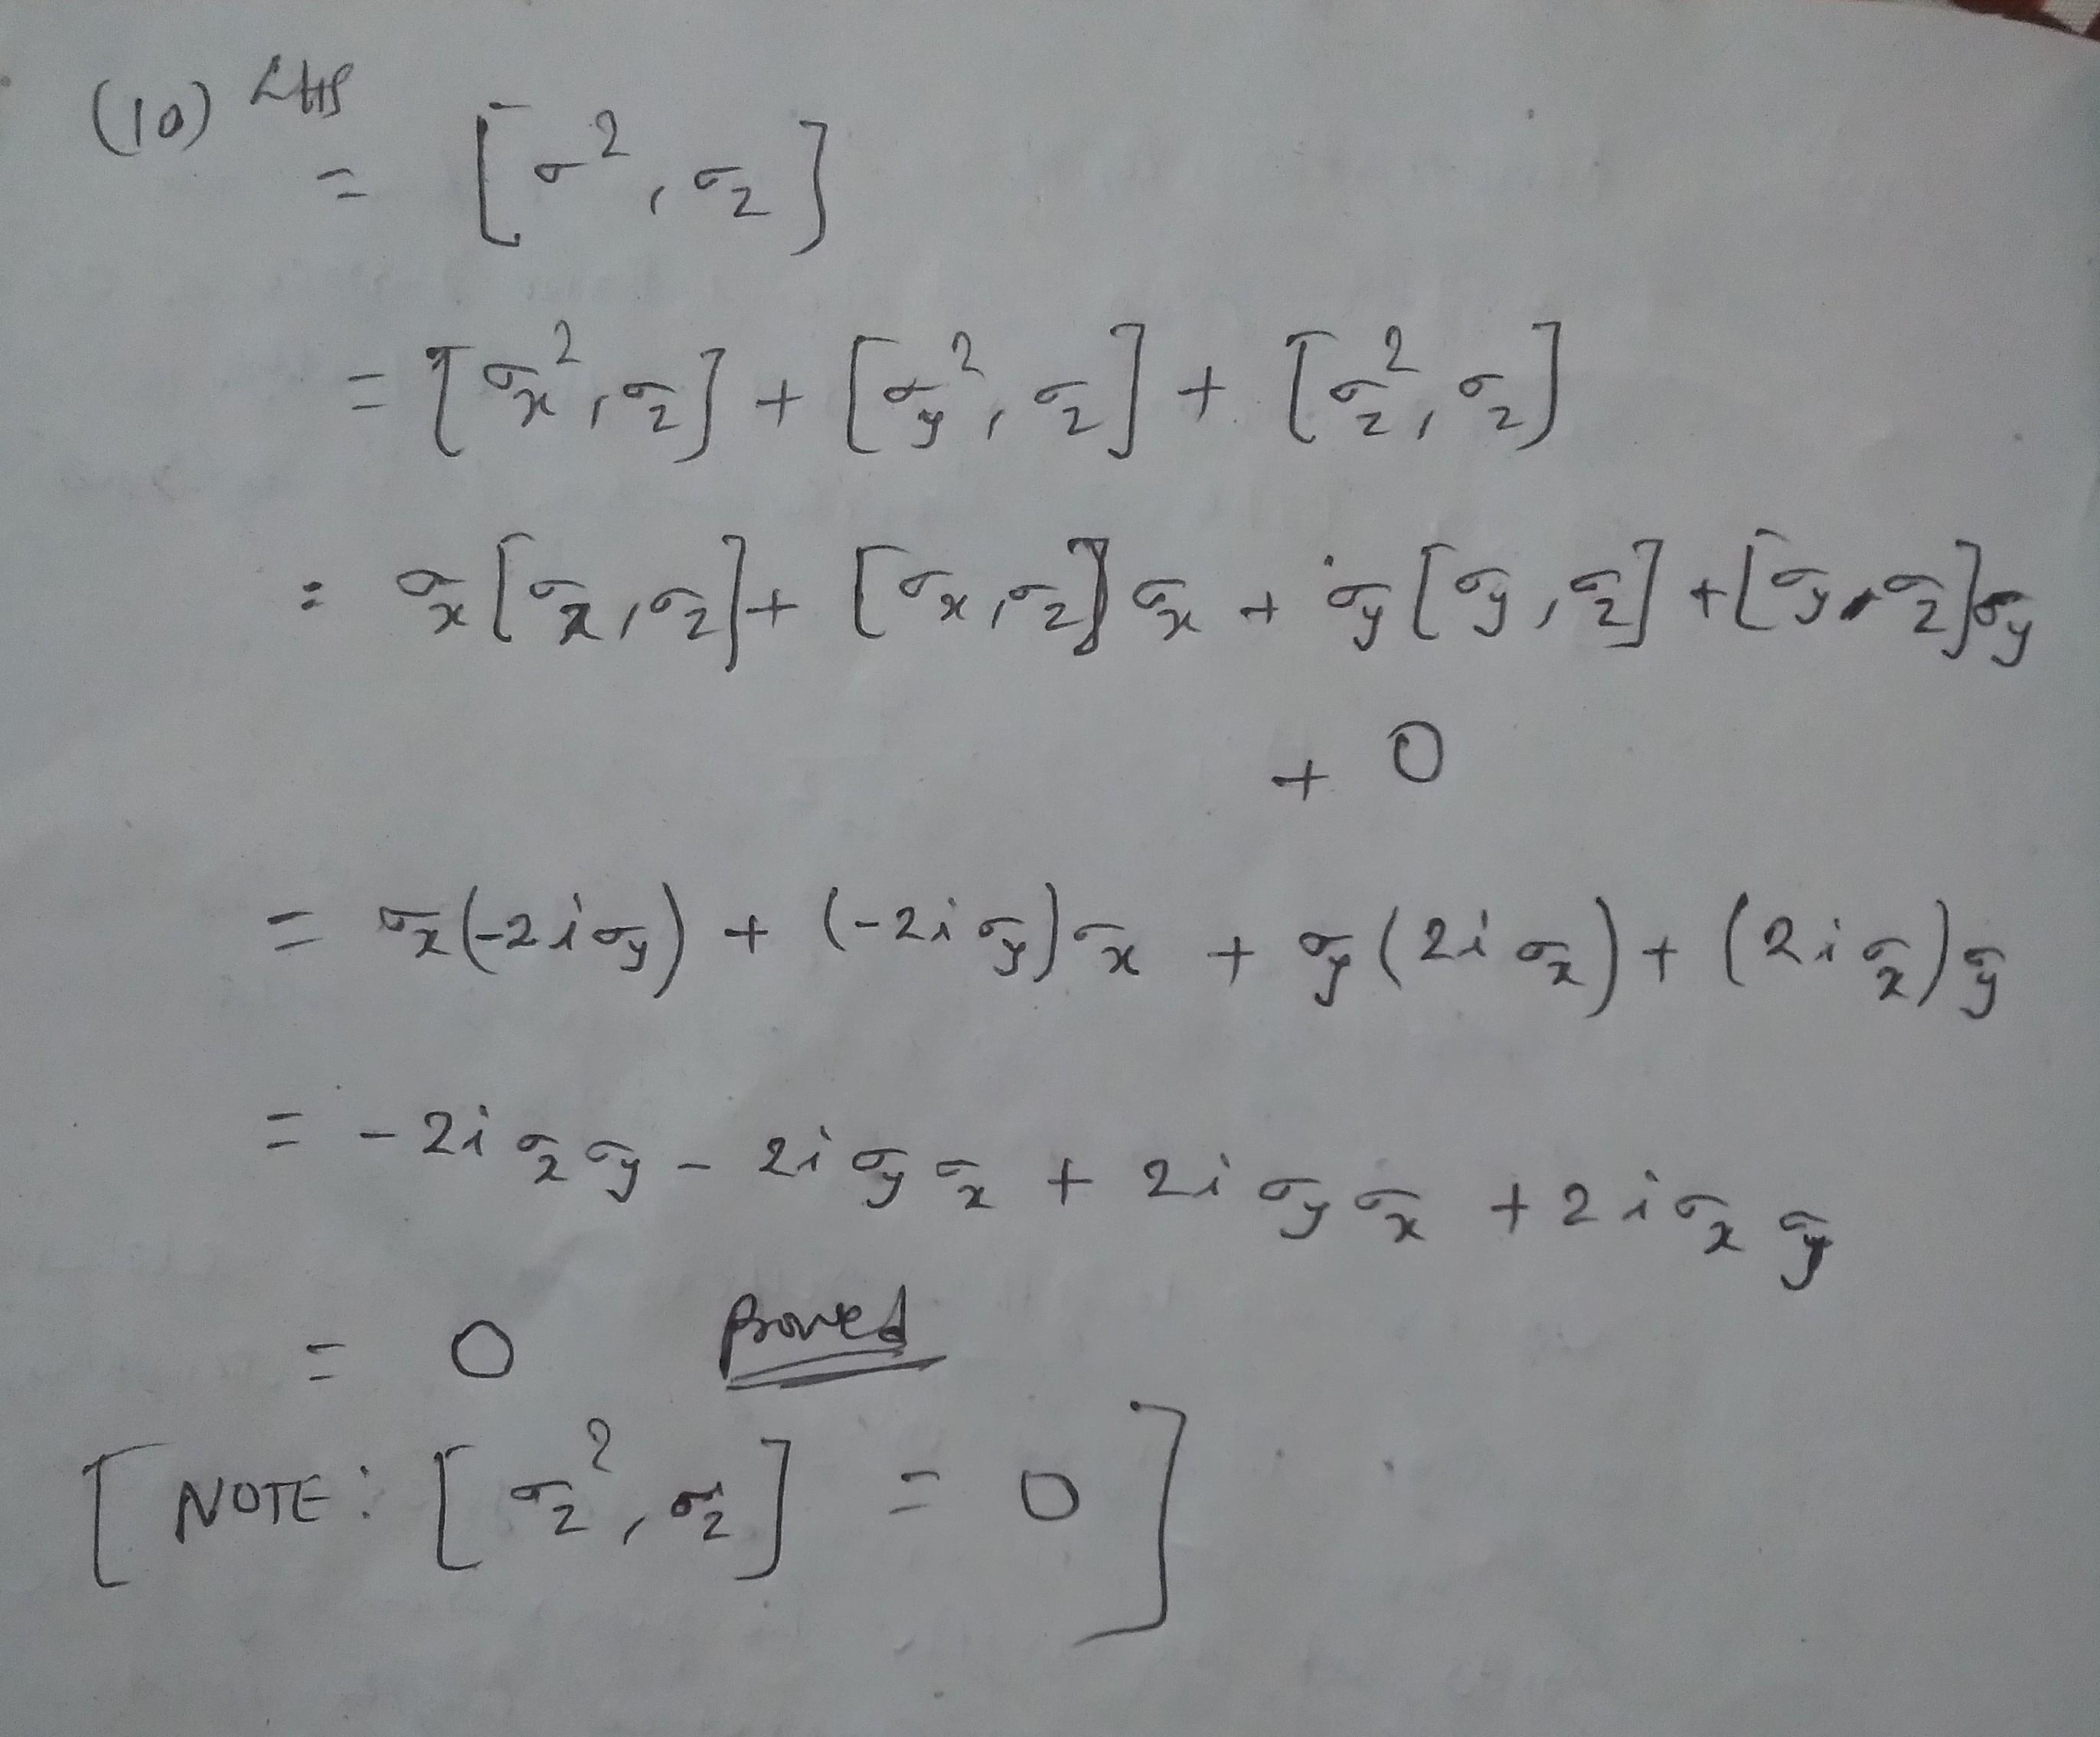 (10) LHS
= [σ², σ_z]
= [σ_x², σ_z] + [σ_y², σ_z] + [σ_z², σ_z]
= σ_x[σ_x, σ_z] + [σ_x, σ_z]σ_x + σ_y[σ_y, σ_z] + [σ_y, σ_z]σ_y
+ 0
= σ_x(-2iσ_y) + (-2iσ_y)σ_x + σ_y(2iσ_x) + (2iσ_x)σ_y
= -2iσ_xσ_y - 2iσ_yσ_x + 2iσ_yσ_x + 2iσ_xσ_y
= 0 Proved
[NOTE: [σ_z², σ_z] = 0]